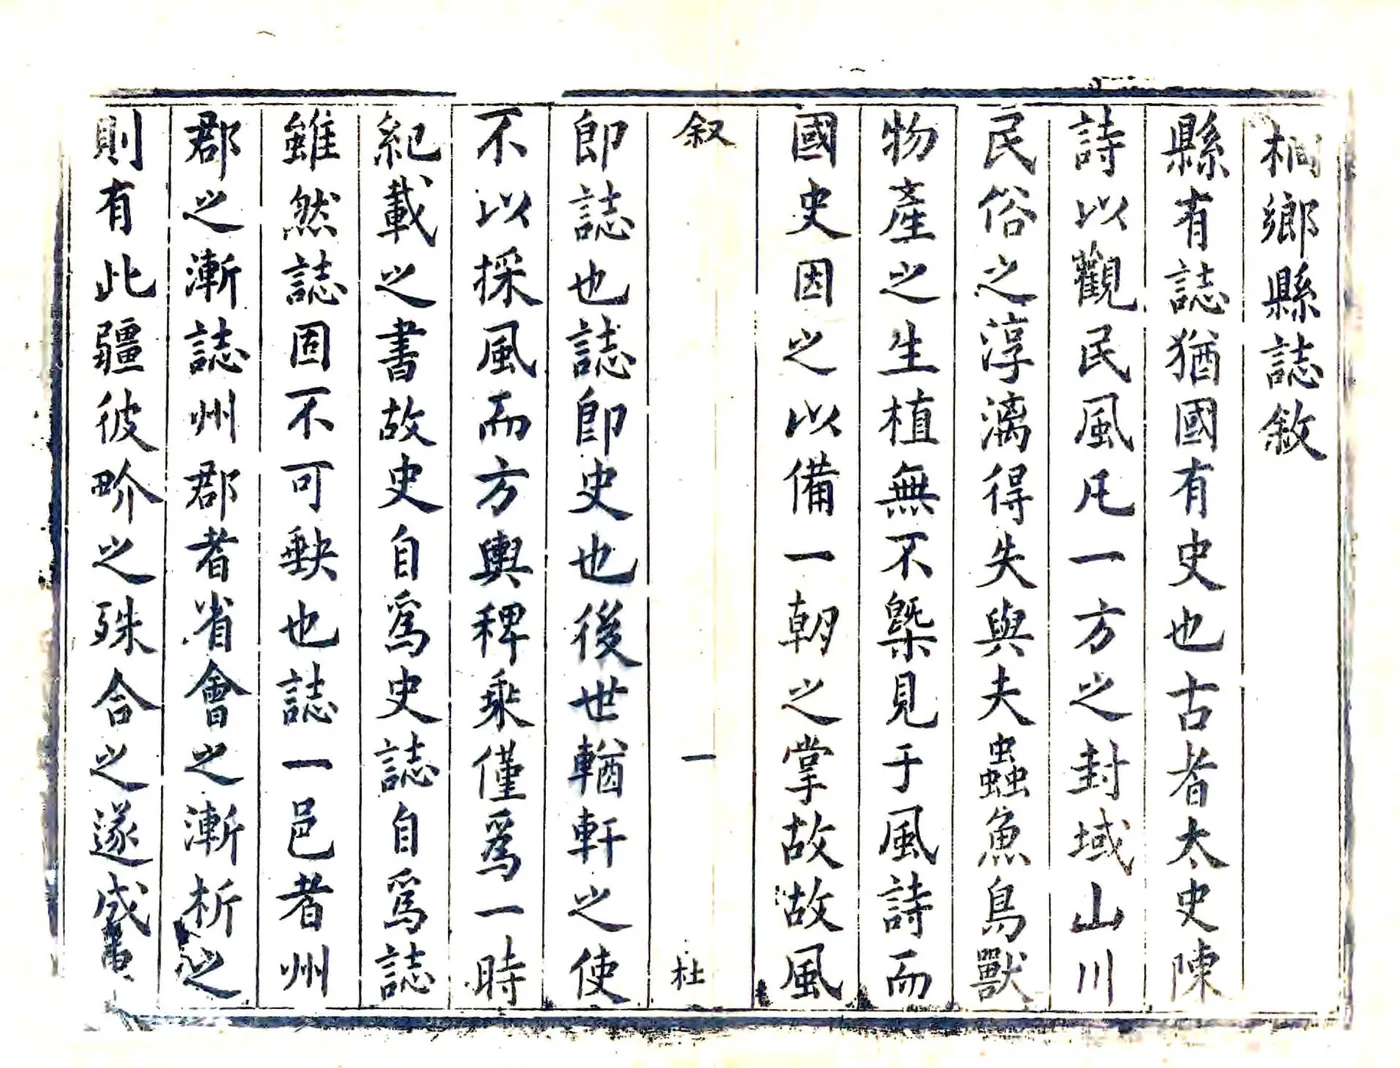 桐鄉縣誌敘
縣有誌猶國有史也古者太史陳
詩以觀民風凡一方之封域山川
民俗之淳漓得失與夫蟲魚鳥獸
物產之生植無不槩見于風詩而
國史因之以備一朝之掌故故風
叙 一 杜
即誌也誌即史也後世輶軒之使
不以採風而方輿稗乘僅爲一時
紀載之書故史自爲史誌自爲誌
雖然誌固不可缺也誌一邑者州
郡之漸誌州郡者省會之漸析之
則有此疆彼畍之殊合之遂成